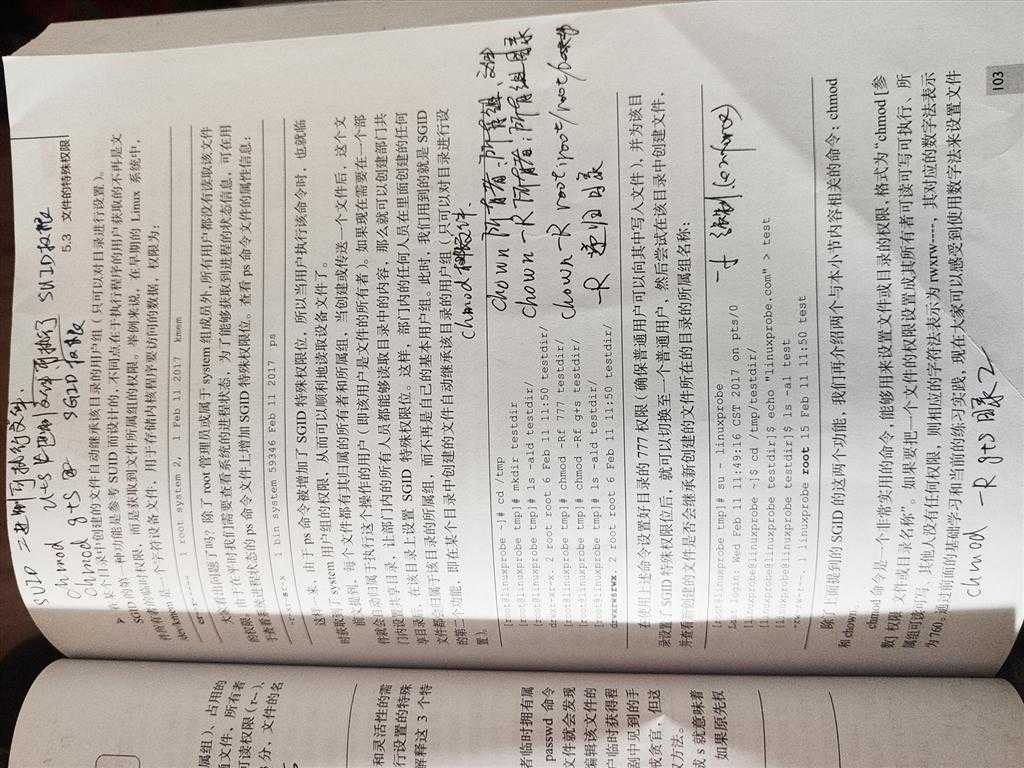 SUID 二进制可执行文件
chmod u+s 二进制文件可执行 SUID权限
chmod g+s 目录 SGID权限
5.3 文件的特殊权限
➤ 在某个目录中创建的文件自动继承该目录的用户组（只可以对目录进行设置）。
SGID 的第一种功能是参考 SUID 而设计的，不同点在于执行程序的用户获取的不再是文
件所有者的临时权限，而是获取到文件所属组的权限。举例来说，在早期的 Linux 系统中，
/dev/kmem 是一个字符设备文件，用于存储内核程序要访问的数据，权限为：
cr--r----- 1 root system 2, 1 Feb 11 2017 kmem
大家看出问题了吗？除了 root 管理员或属于 system 组成员外，所有用户都没有读取该文件
的权限。由于在平时我们需要查看系统的进程状态，为了能够获取到进程的状态信息，可在用
于查看系统进程状态的 ps 命令文件上增加 SGID 特殊权限位。查看 ps 命令文件的属性信息：
-r-xr-sr-x 1 bin system 59346 Feb 11 2017 ps
这样一来，由于 ps 命令被增加了 SGID 特殊权限位，所以当用户执行该命令时，也就临
时获取到了 system 用户组的权限，从而可以顺利地读取设备文件了。
前文提到，每个文件都有其归属的所有者和所属组，当创建或传送一个文件后，这个文
件就会自动归属于执行这个操作的用户（即该用户是文件的所有者）。如果现在需要在一个部
门内设置共享目录，让部门内的所有人员都能够读取目录中的内容，那么就可以创建部门共
享目录后，在该目录上设置 SGID 特殊权限位。这样，部门内的任何人员在里面创建的任何
文件都会归属于该目录的所属组，而不再是自己的基本用户组。此时，我们用到的就是 SGID
的第二个功能，即在某个目录中创建的文件自动继承该目录的用户组（只可以对目录进行设
置）。
chmod 权限 文件
[root@linuxprobe ~]# cd /tmp
[root@linuxprobe tmp]# mkdir testdir
[root@linuxprobe tmp]# ls -ald testdir/
drwxr-xr-x. 2 root root 6 Feb 11 11:50 testdir/
[root@linuxprobe tmp]# chmod -Rf 777 testdir/
[root@linuxprobe tmp]# chmod -Rf g+s testdir/
[root@linuxprobe tmp]# ls -ald testdir/
drwxrwsrwx. 2 root root 6 Feb 11 11:50 testdir/
chown 所有者:所有组 文件
chown -R 所有者:所有组 目录
chown -R root:root /root/
-R 递归目录
在使用上述命令设置好目录的 777 权限（确保普通用户可以向其中写入文件），并为该目
录设置了 SGID 特殊权限位后，就可以切换至一个普通用户，然后尝试在该目录中创建文件，
并查看新创建的文件是否会继承新创建的文件所在的目录的所属组名称：
[root@linuxprobe tmp]# su - linuxprobe
Last login: Wed Feb 11 11:49:16 CST 2017 on pts/0
[linuxprobe@linuxprobe ~]$ cd /tmp/testdir/
[linuxprobe@linuxprobe testdir]$ echo "linuxprobe.com" > test
[linuxprobe@linuxprobe testdir]$ ls -al test
-rw-rw-r--. 1 linuxprobe root 15 Feb 11 11:50 test
-f 强制
除了上面提到的 SGID 的这两个功能，我们再介绍两个与本小节内容相关的命令：chmod
和 chown。
chmod 命令是一个非常实用的命令，能够用来设置文件或目录的权限，格式为“chmod [参
数] 权限 文件或目录名称”。如果要把一个文件的权限设置成其所有者可读可写可执行、所
属组可读可写、其他人没有任何权限，则相应的字符法表示为 rwxrw----，其对应的数字法表示
为 760。通过前面的基础学习和当前的练习实践，现在大家可以感受到使用数字法来设置文件
chmod -R g+s 目录2
103
属组)、占用的
文件、所有者
可读权限（r--）、
分，文件的名
和灵活性的需
行设置的特殊
解释这 3 个特
者临时拥有属
passwd 命令
文件就会发现
编辑该文件的
户临时获得程
剧中见到的手
或贪官，但这
权方法。
成 s 就意味着
如果原先权